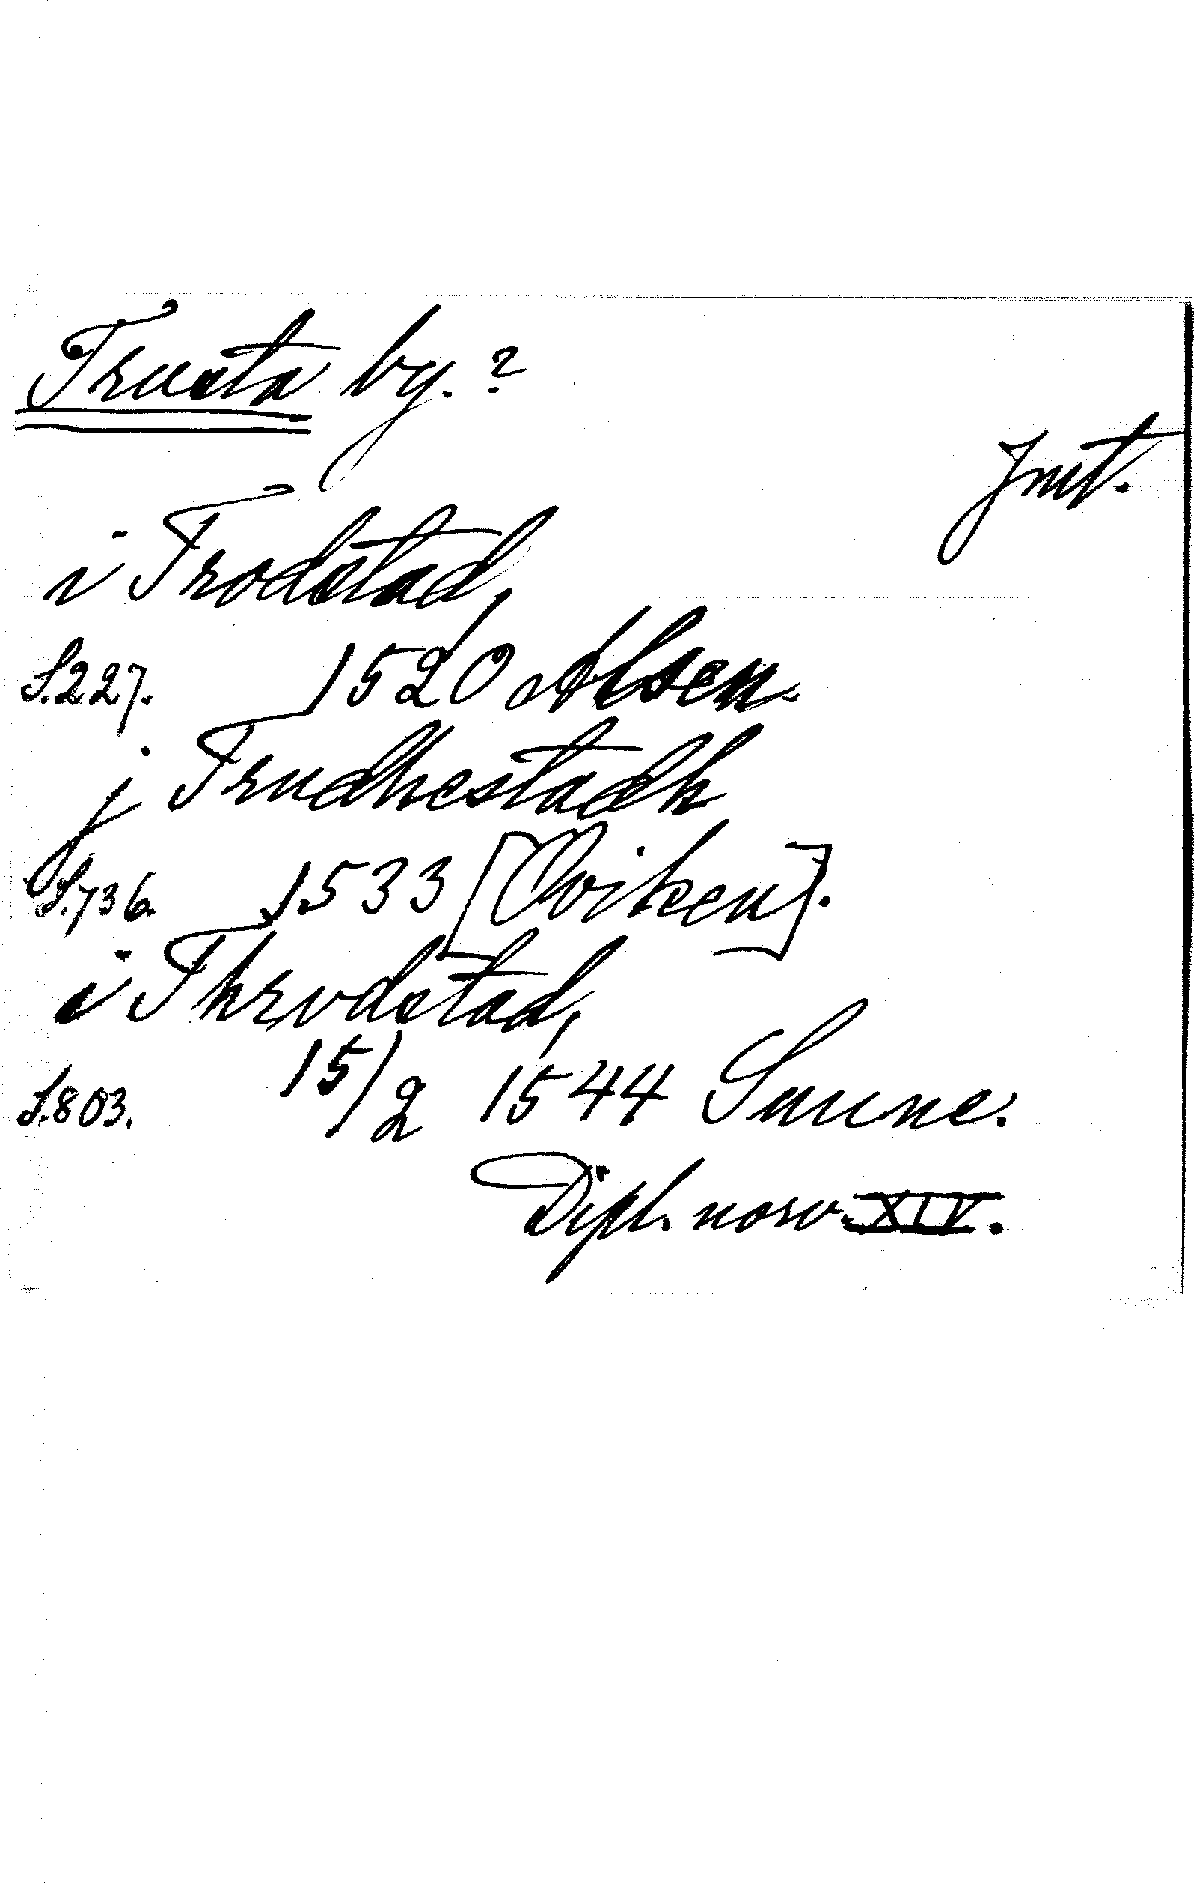 Trusta by.?
Jmt.
i Trodstad,
S.227. 1520 Alsen.
j Trudhestadh
S.736. 1533 [Oviken].
i Throdstad,
S.803. 15/2 1544 Sunne.
Dipl. norv. XIV.